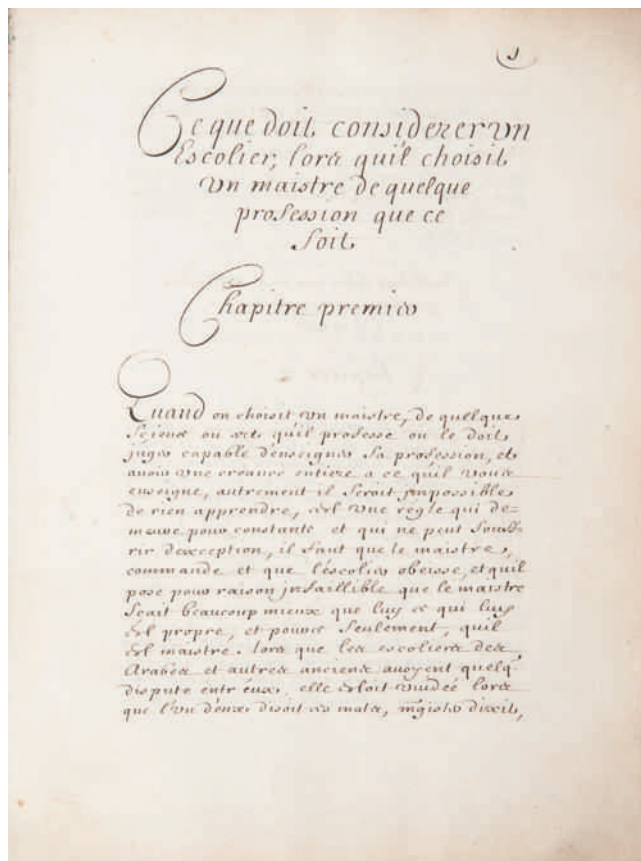 1
Ce que doit considerer vn
Escolier, lors qu'il choisit
vn maistre de quelque
profession que ce
soit
Chapitre premier
Quand on choisit vn maistre, de quelque
science ou art qu'il professe on le doit
juger capable d'enseigner sa profession, et
avoir vne creance entiere a ce qu'il vous
enseigne, autrement il seroit jmpossible
de rien apprendre, c'est vne regle qui de-
meure pour constante et qui ne peut souff-
rir d'exception, il faut que le maistre,
commande et que l'escolier obeisse, et qu'il
pose pour raison jnfaillible que le maistre
scait beaucoup mieux que luy ce qui luy
est propre, et pource seulement, qu'il
est maistre. lors que les escoliers des
Arabes et autres anciens avoyent quelq'
dispute entr'eux, elle estoit vuidée lors
que l'vn d'eux disoit ces mots, mgister dixit,